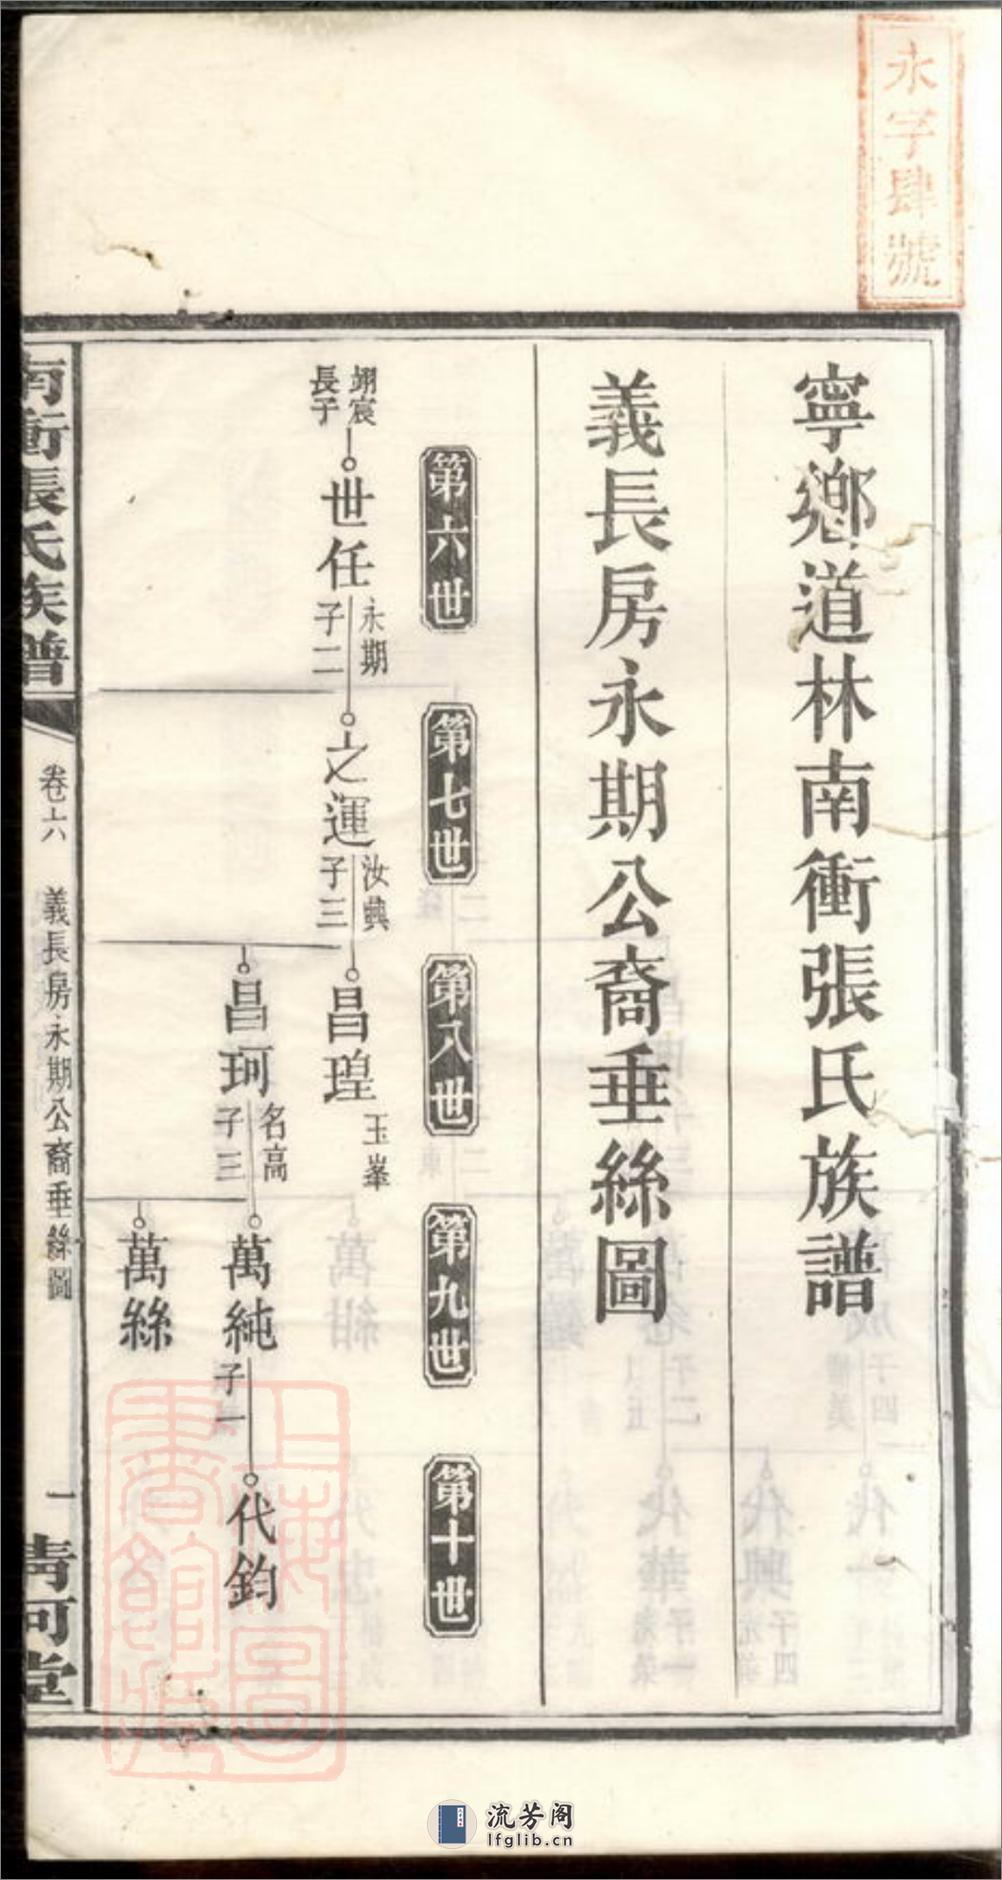 永字肆號
寧鄉道林南衝張氏族譜
義長房永期公裔垂絲圖
第六世
第七世
第八世
第九世
第十世
翊宸
長子
世任
永期
子二
之運
汝興
子三
昌瑝
玉峯
昌珂
名高
子三
萬純
子一
代鈞
萬絲
南衝張氏族譜
卷六
義長房永期公裔垂絲圖
一
清河堂
上海圖
書館藏
流芳阁
lfglib.cn